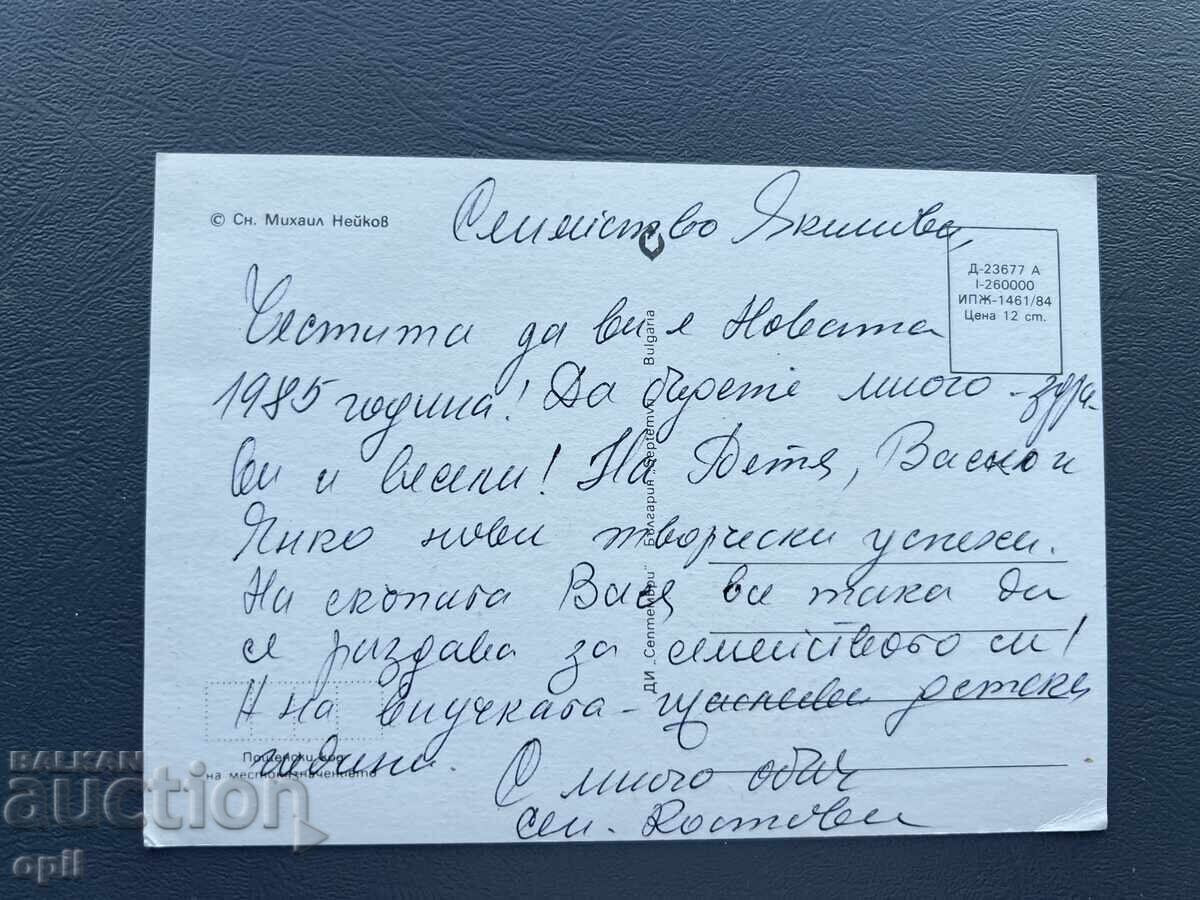 © Сн. Михаил Нейков
Семейство Якимови,
Д-23677 А
I-260000
ИПЖ-1461/84
Цена 12 ст.
Честита да ви е Новата
1985 година! Да бъдете много здра-
ви и весели! На Петя, Васко и
Янко нови творчески успехи.
На скъпата Вася все така да
се раздава за семейството си!
И на внучката - щастливи детски
години.
С много обич
сем. Костови
ДИ „Септември" България „Septemvri" Bulgaria
Пощенски код
на местоназначението
BALKAN
auction
opil